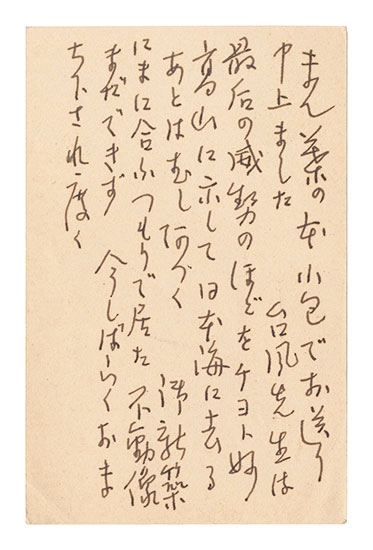 まん葉の本小包でお送り
申上ました　台風先生は
最后の威勢のほどをチヨト妙
高山に示して日本海に去る
あとはむし阿づく　御新築
にまに合ふつもりで居た　不動像
まだできず　今しばらくおま
ち下され度く